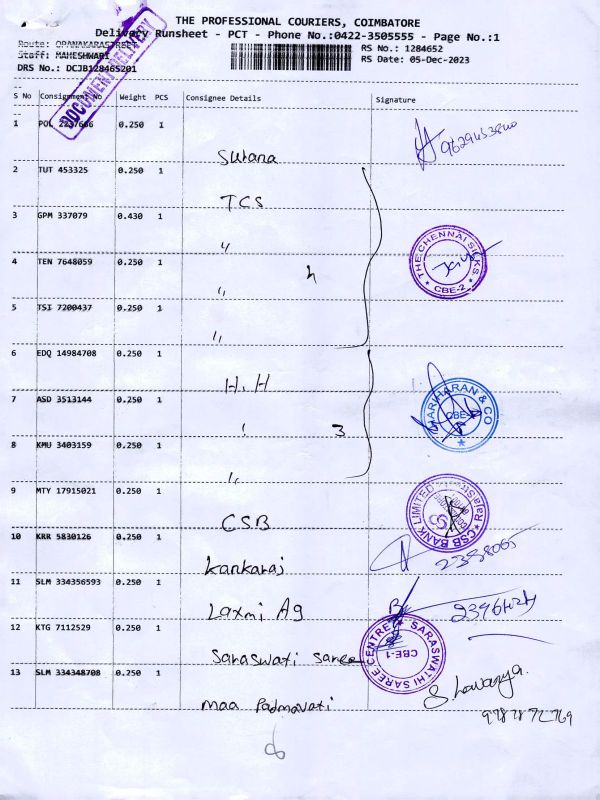 THE PROFESSIONAL COURIERS, COIMBATORE
Delivery Runsheet - PCT - Phone No.:0422-3505555 - Page No.:1
Route: OPANAKARASTREET RS No.: 1284652
Staff: MAHESHWARI RS Date: 05-Dec-2023
DRS No.: DCJB128465201
DOCUMENT DELIVERY
S No Consignment No Weight PCS Consignee Details Signature
1 POL 2237666 0.250 1
Sutana 9629453840
2 TUT 453325 0.250 1
TCS
3 GPM 337079 0.430 1
"
THE CHENNAI SILKS CBE-2
4 TEN 7648059 0.250 1
" 4
5 TSI 7200437 0.250 1
"
6 EDQ 14984708 0.250 1
H.H
7 ASD 3513144 0.250 1
" 3
HARIHARAN & CO CBE-1
8 KMU 3403159 0.250 1
"
9 MTY 17915021 0.250 1
CSB
CSB BANK LIMITED
10 KRR 5830126 0.250 1
Kankaraj
11 SLM 334356593 0.250 1
Laxmi Ag
12 KTG 7112529 0.250 1
Saraswati Saree
SARASWATHI SAREE CENTRE CBE-1
13 SLM 334348708 0.250 1
Maa Padmavati